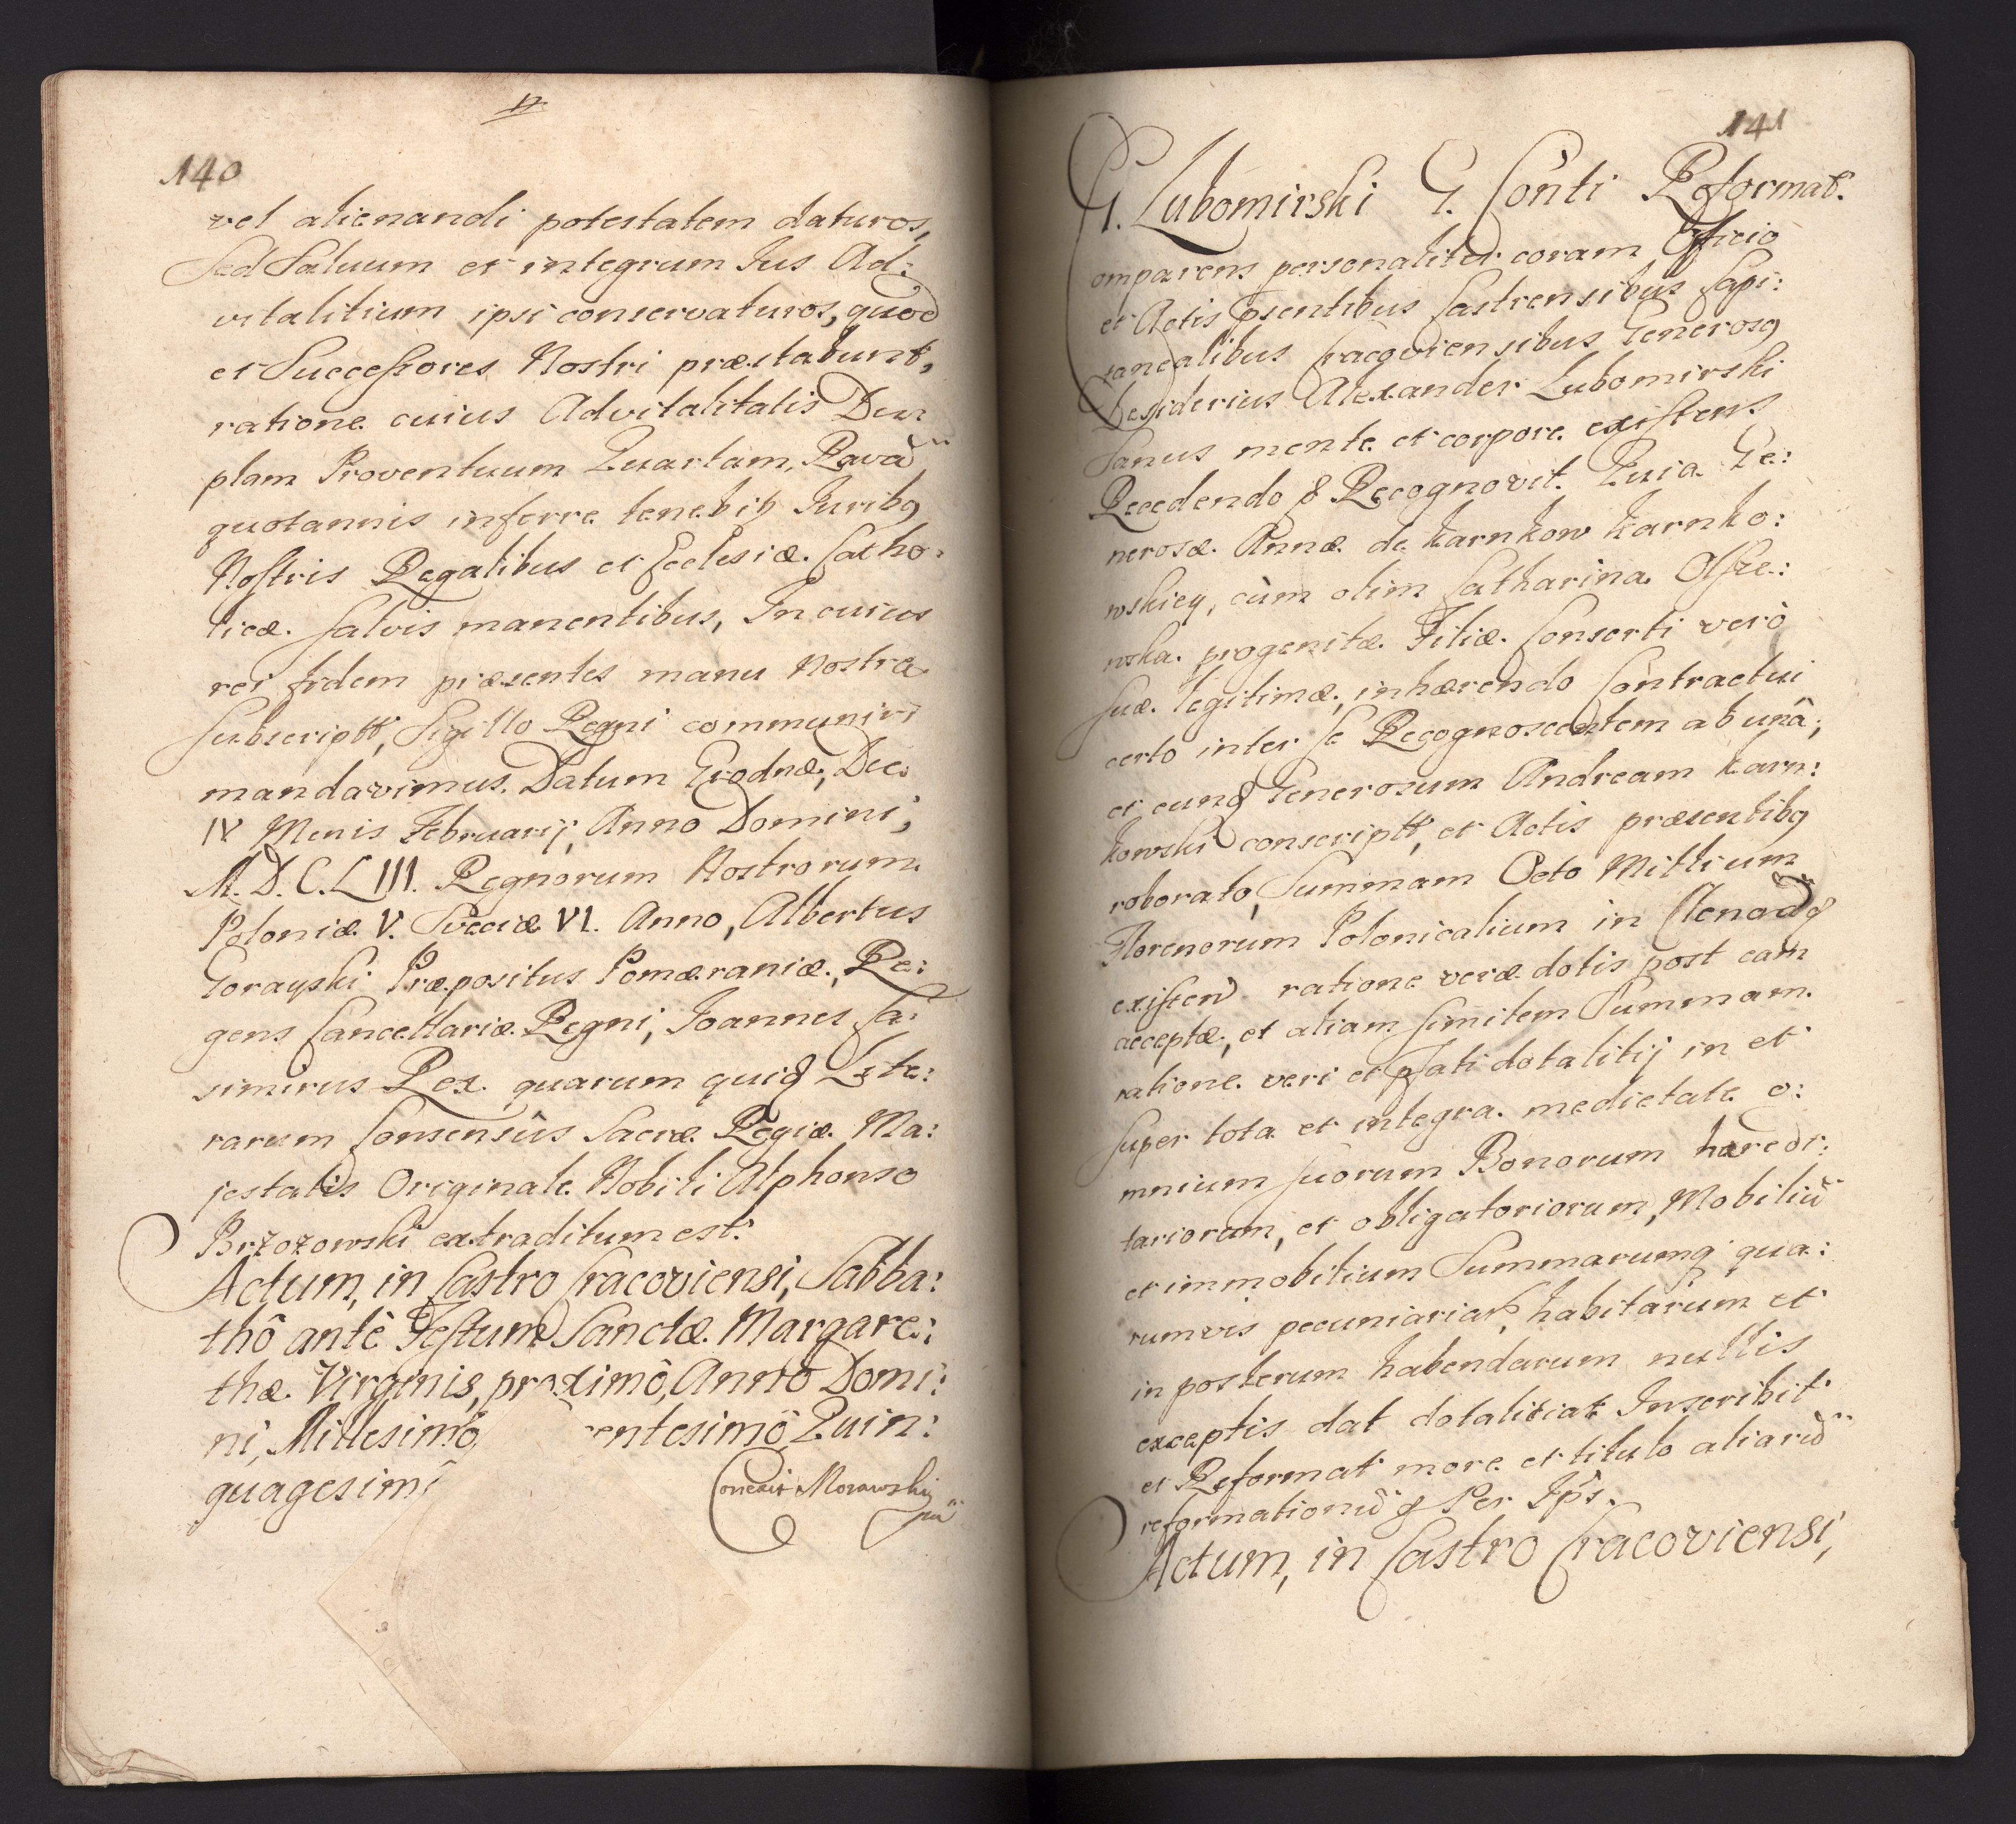 140
vel alienandi potestatem daturos,
Sed Salvum et integrum Jus Ad:
vitalitium ipsi conservaturos, quod
et Successores Nostri præstabunt,
ratione cuius Advitalitatis Du:
plam Proventuum Quartam, Ravã
quotannis inferre tenebit, Juribq
Nostris Regalibus et Ecclesiæ Catho:
licæ salvis manentibus, In cuius
rei fidem præsentes manu Nostra
subscriptt, Sigillo Regni communiri
mandavimus. Datum Grodnæ, Die
IV Mensis Februarij, Anno Domini,
M.D.C.LIII. Regnorum Nostrorum
Poloniæ V. Sveciæ VI. Anno, Albertus
Gorayski Præpositus Pomæraniæ, Re:
gens Cancellariæ Regni, Joannes Ca:
simirus Rex quarum quid Lite:
rarum Consensûs Sacræ Regiæ Ma:
jestatis Originale Nobili Alphonso
Brzozowski extraditum est.
Actum, in Castro Cracoviensi, Sabba:
thô antè Festum Sanctæ Margare:
thæ Virginis, proximô, Annô Domi:
ni, Millesimô, entesimô Quin:
quagesim
Conexit Morawskij
mã
141
G. Lubomirski G. Cõnti Reformat.
omparens personaliter coram Officio
et Actis psentibus Castrensibus Capi:
tanealibus Cracoviensibus Generosq
Desiderius Alexander Lubomirski
Sanus mente et corpore existens
Recedendo & Recognovit. Quia Ge:
nerosæ Annæ de Karnkow Karnko:
wskiey, cùm olim Catharina Olsze:
wska progenitæ Filiæ Consorti verò
suæ legitimæ, inhærendo Contractui
certo inter se Recognoscentem ab unâ,
et eund Generosum Andream Karn:
kowski conscriptt, et Actis præsentibq
roborato, Summam Octo Millium
Florenorum Polonicalium in Clenod &
existen ratione veræ dotis post eam
acceptæ, et aliam similem Summam
ratione veri et pfati dotalitij in et
super tota et integra medietate o:
mnium suorum Bonorum hæredi:
tariorum, et obligatoriorum, Mobiliũ
et immobilium Summarumq qua:
rumvis pecuniariar, habitarum et
in posterum habendarum nullis
exceptis dat dotalitiat Inscribit
et Reformat more et titulo aliarũ
reformationũ & Per Ips.
Actum, in Castro Cracoviensi,